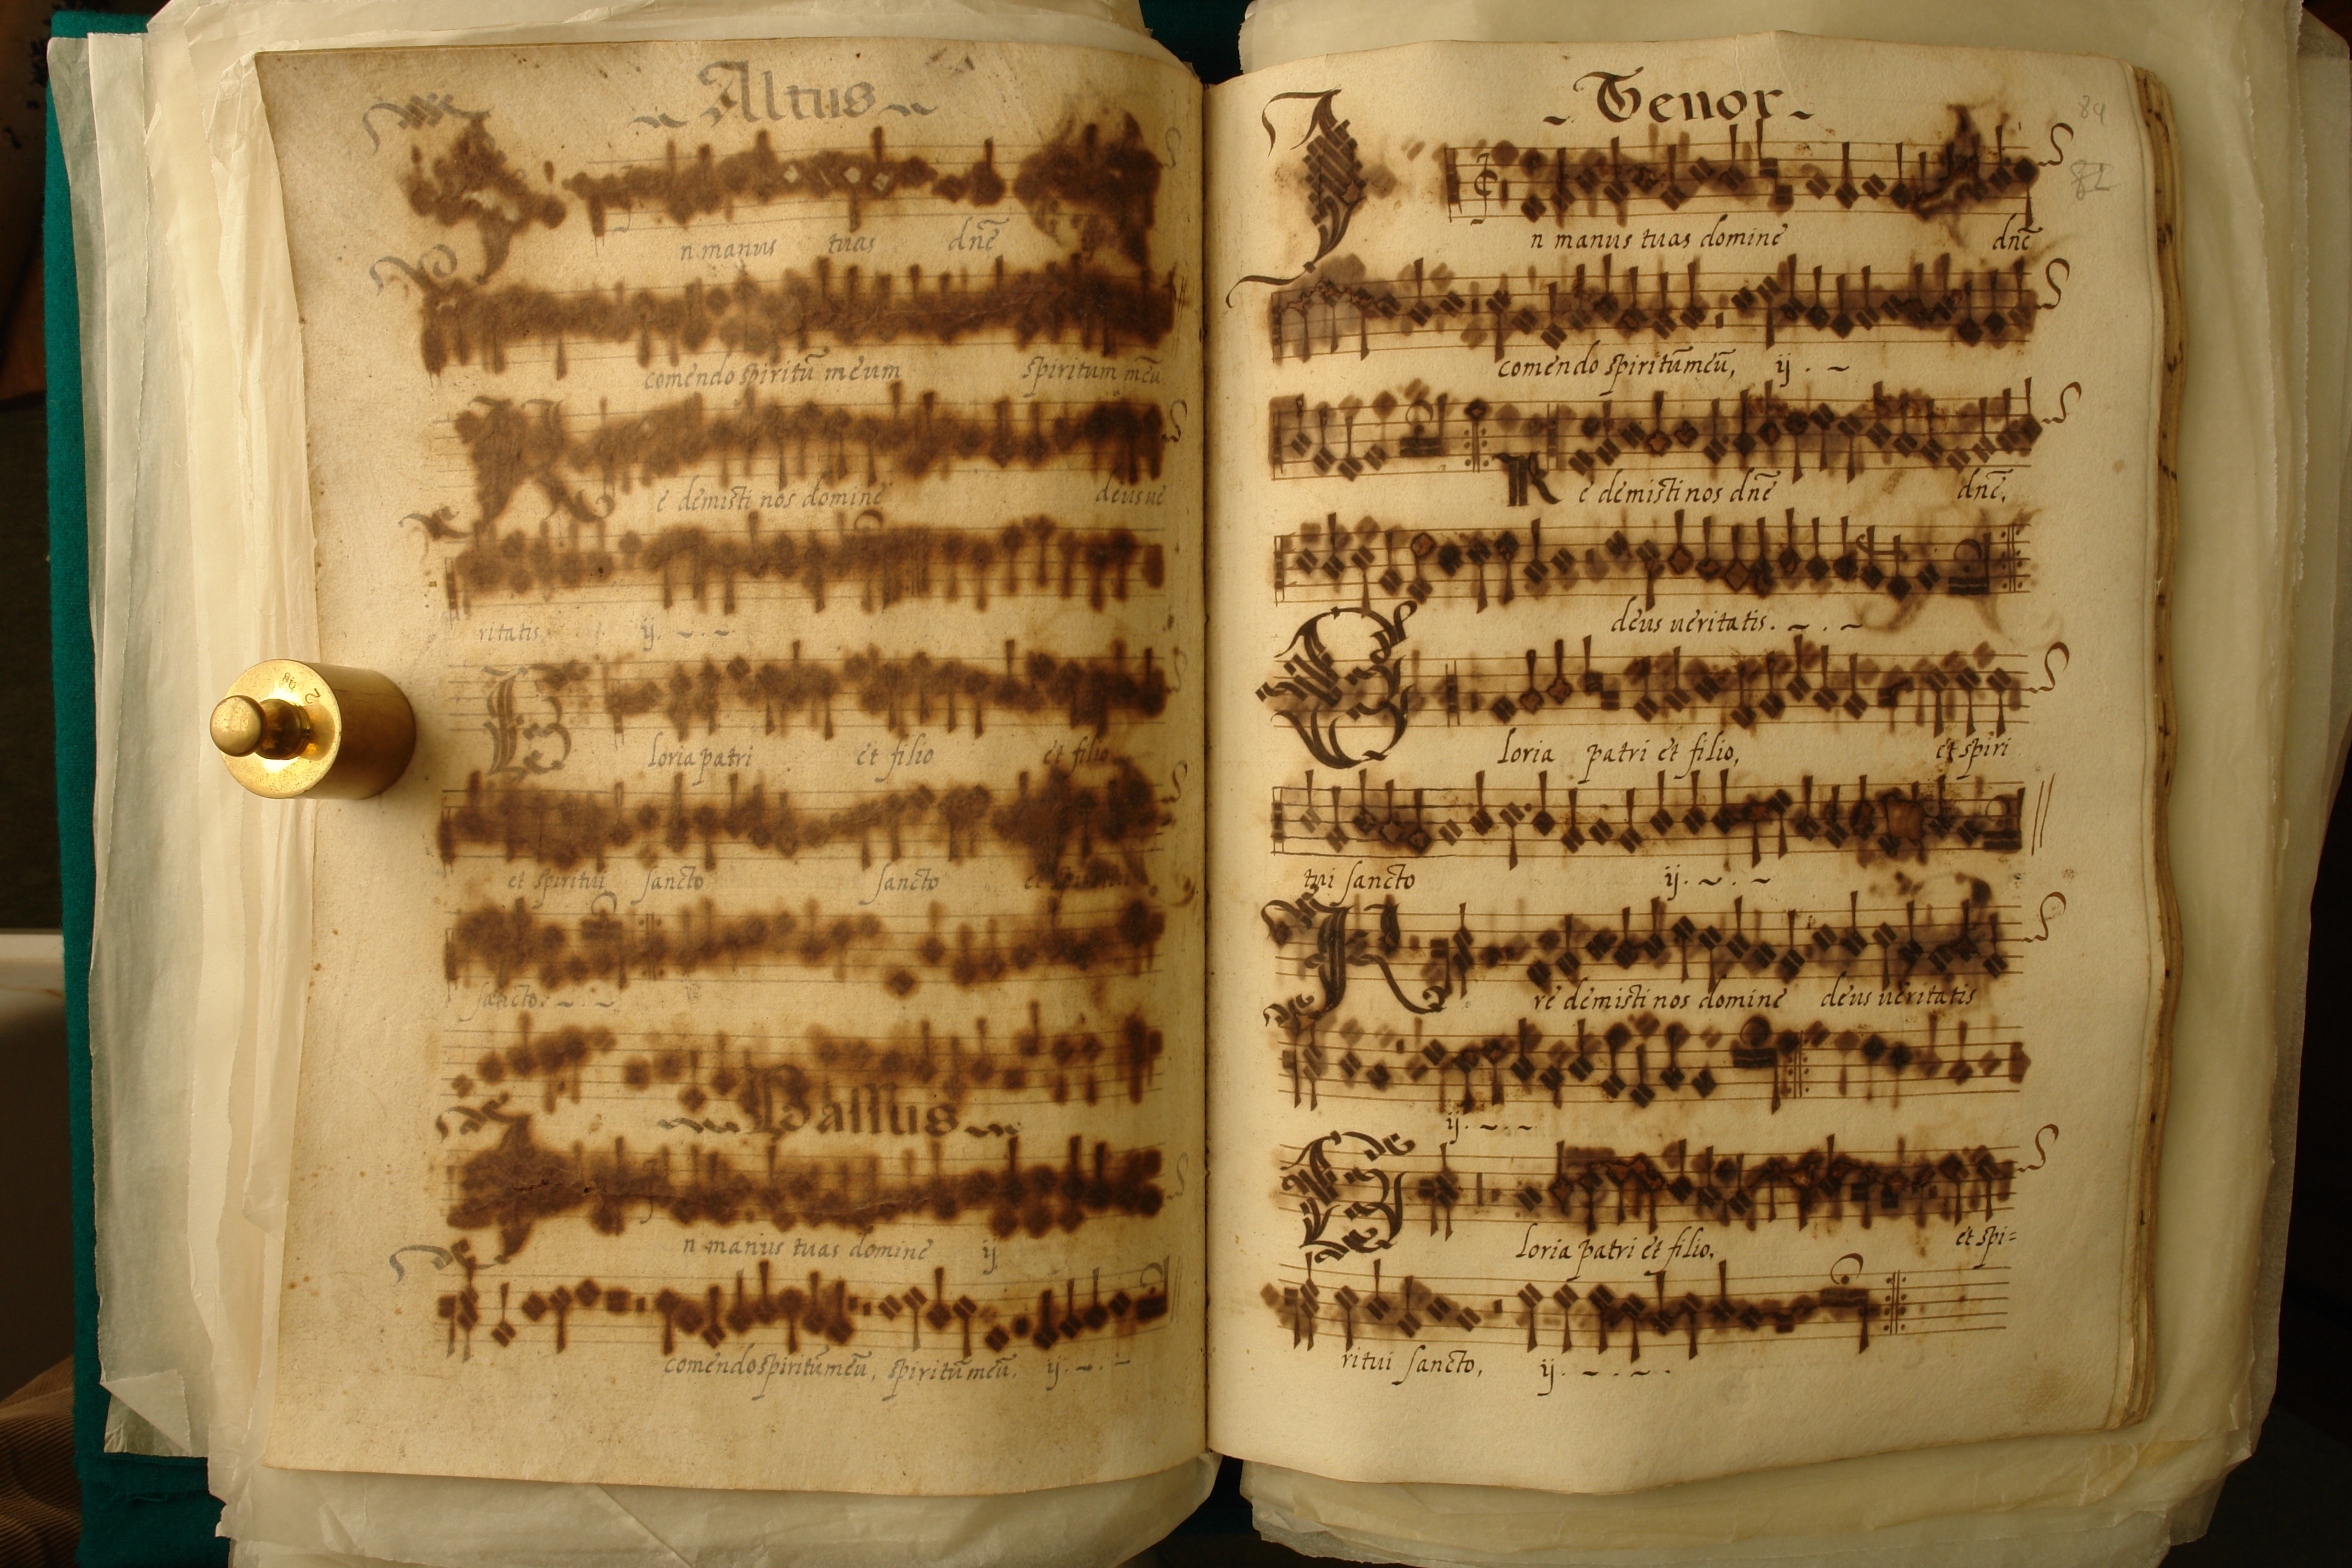 Altus
n manus tuas dnē ij
comendo spiritū meum spiritum meū
Re demisti nos domine deus ue
ritatis ij.
Gloria patri et filio et filio
et spiritui sancto sancto et spiritui
sancto.
Bassus
In manus tuas domine ij
comendo spiritum meū, spiritū meū. ij.
Tenor
84
82
In manus tuas domine dnē
comendo spiritū meū, ij.
Re demisti nos dnē dnē,
deus ueritatis.
Gloria patri et filio, et spiri
tui sancto ij.
re demisti nos domine deus ueritatis
ij.
Gloria patri et filio, et spi=
ritui sancto, ij.